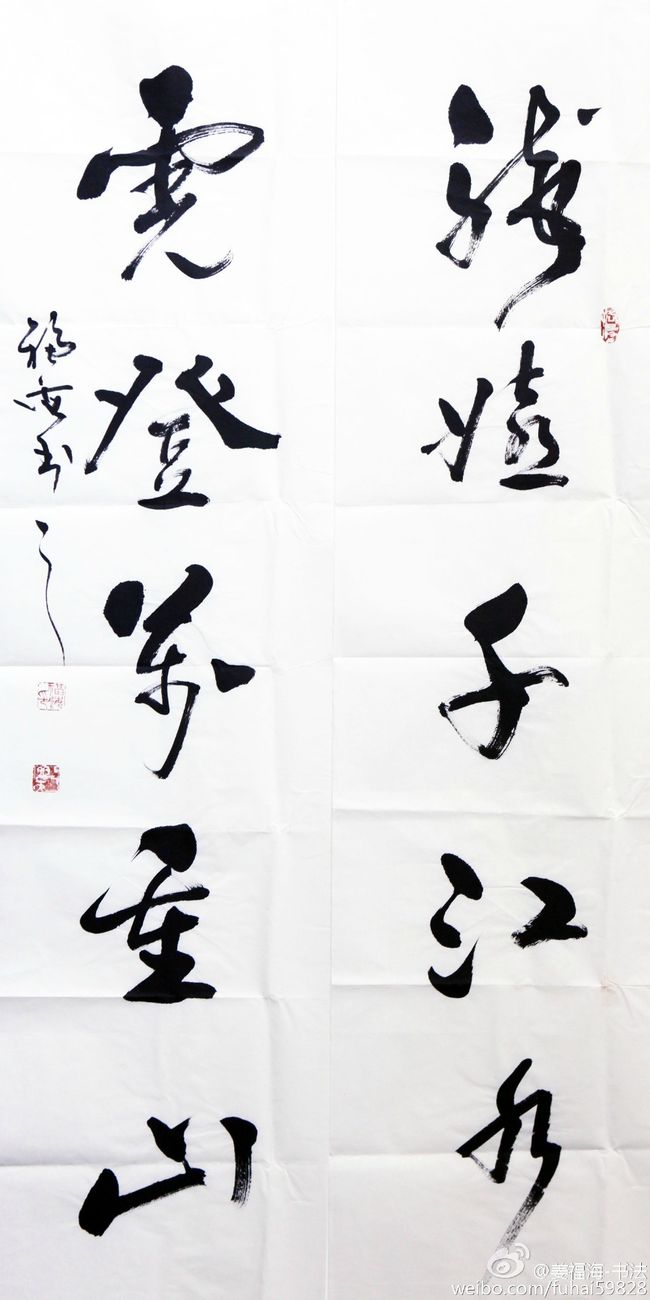 龍嬉千江水
虎登萬重山
福海书
@姜福海-书法
weibo.com/fuhai59828